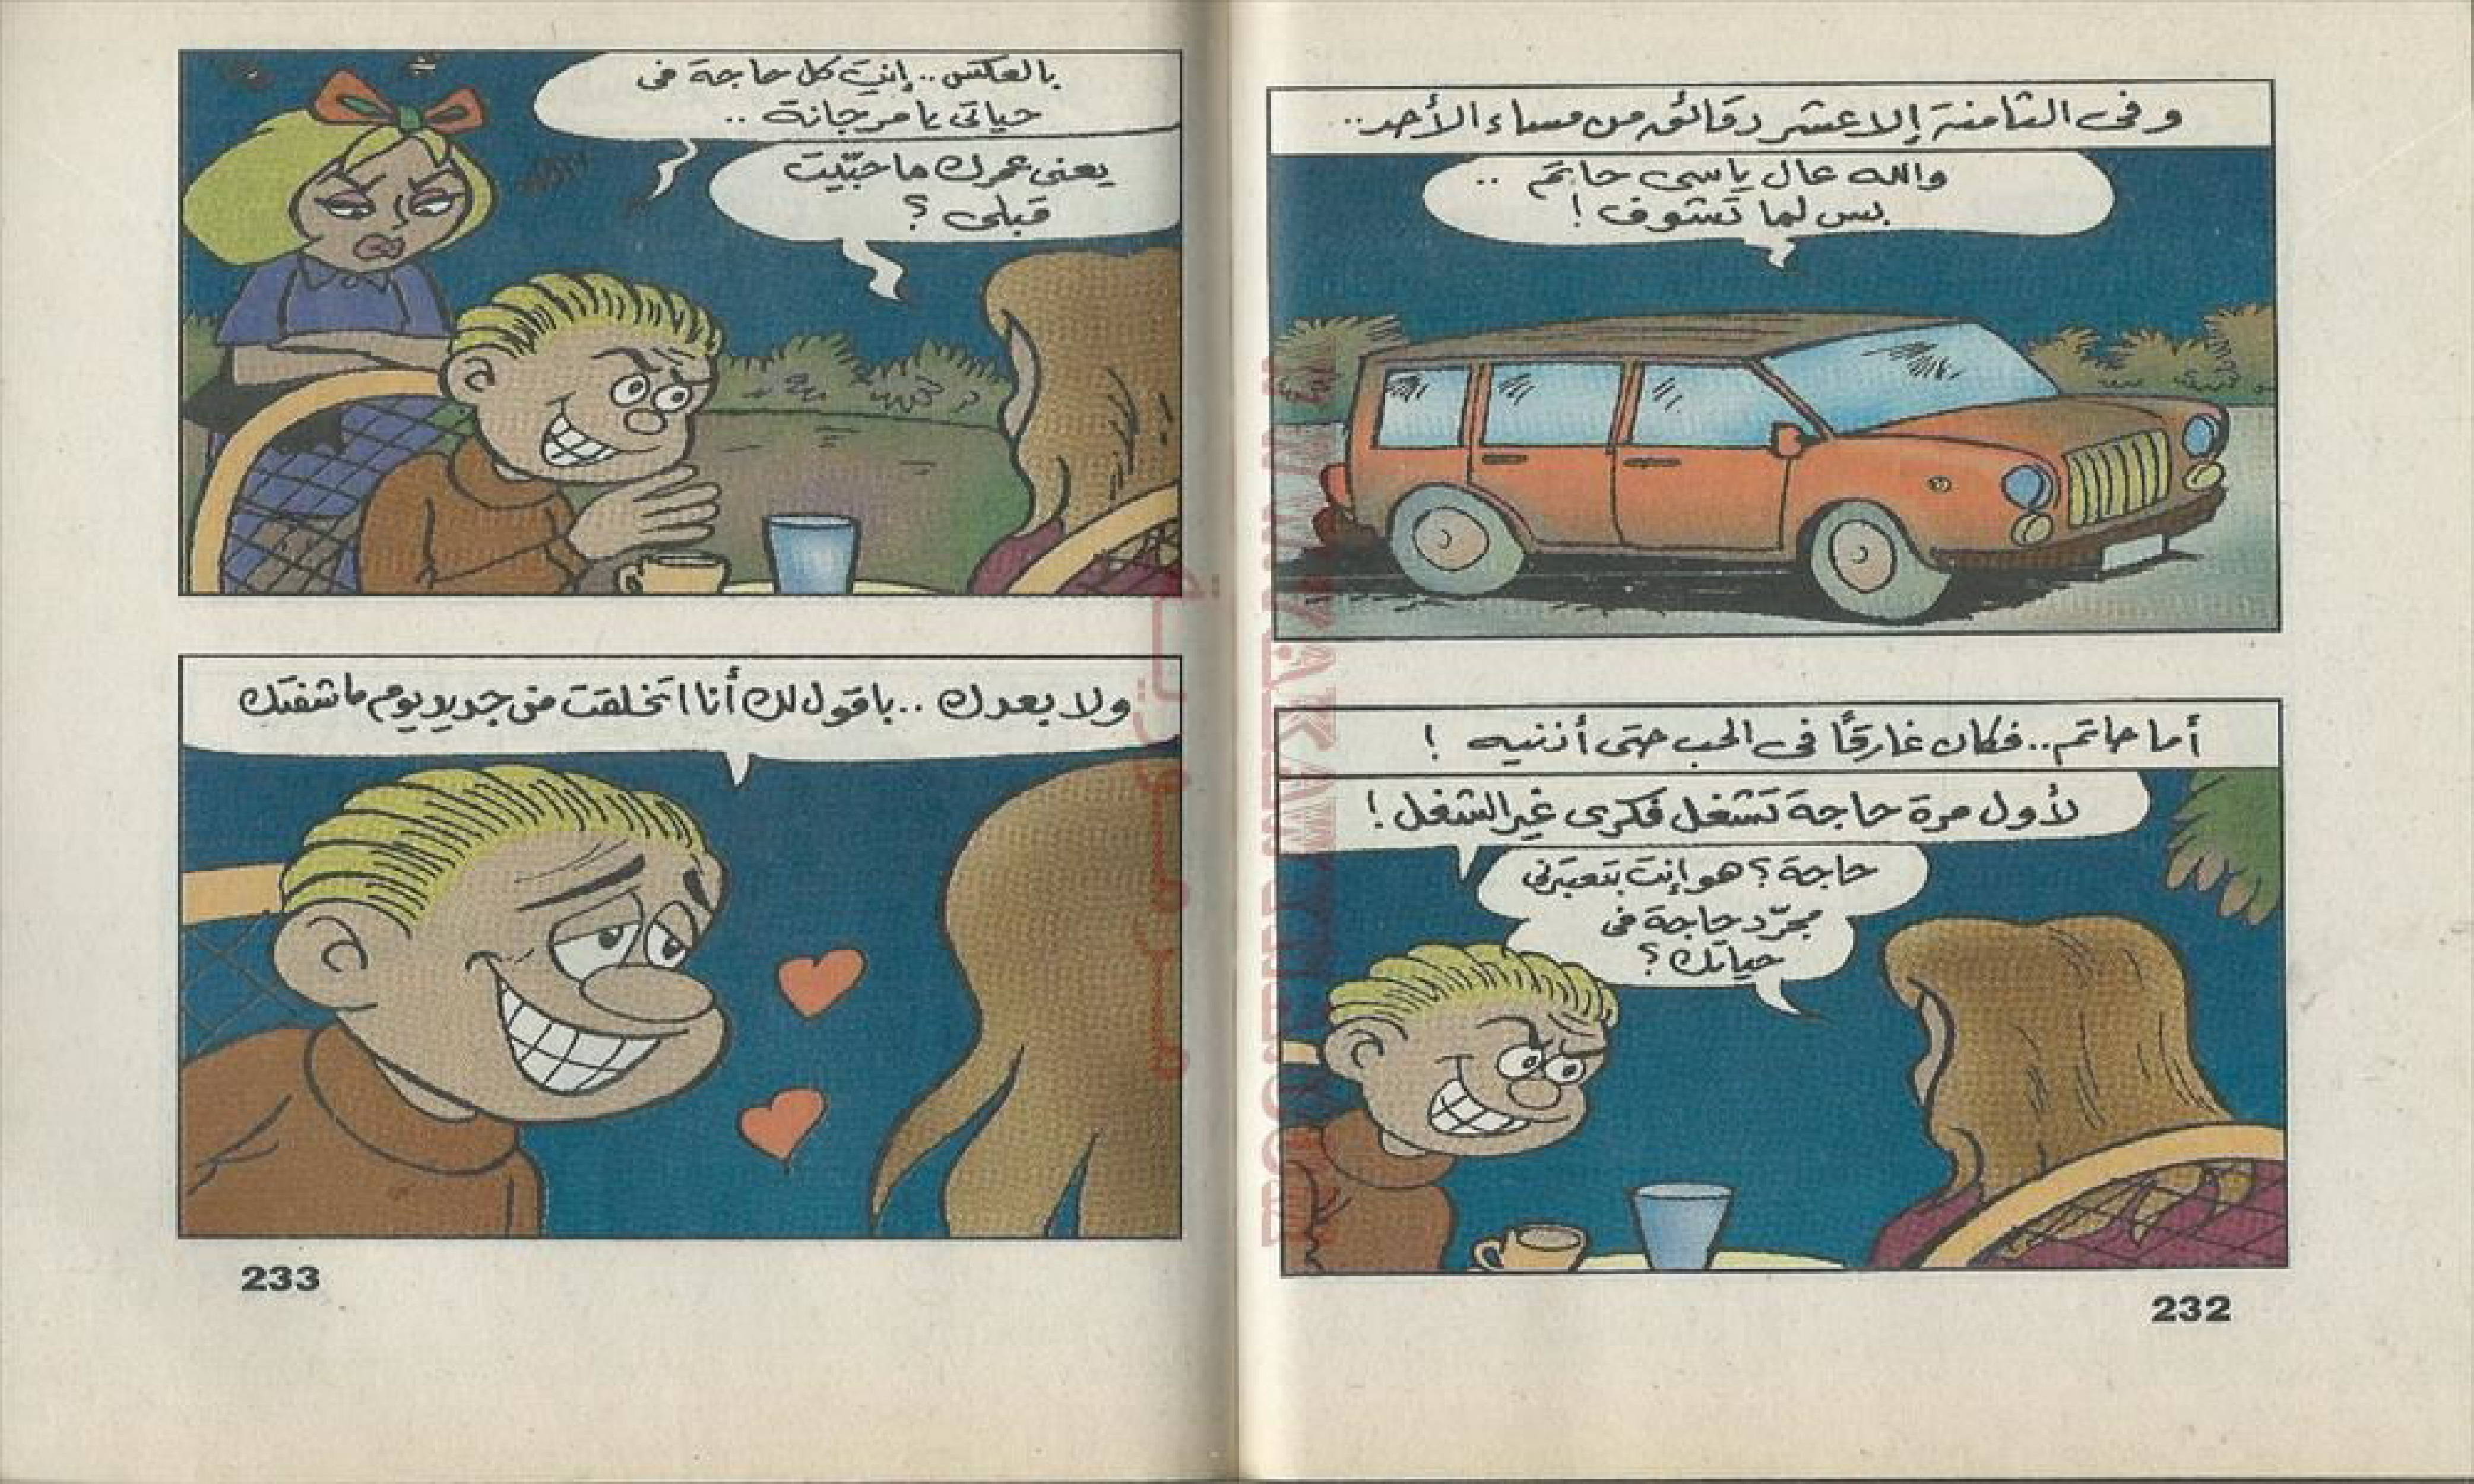 وفى الثامنة إلا عشر دقائق من مساء الأحد..
والله عال ياسى حاتم ..
بس لما تشوف !
أما حاتم.. فكان غارقًا فى الحب حتى أذنيه !
لأول مرة حاجة تشغل فكرى غير الشغل !
حاجة ؟ هو إنت بتعتبرنى
مجرّد حاجة فى
حياتك ؟
232
بالعكس.. إنتِ كل حاجة فى
حياتى يا مرجانة ..
يعنى عمرك ما حبّيت
قبلى ؟
ولا بعدك .. باقول لك أنا اتخلقت من جديد يوم ما شفتك
233